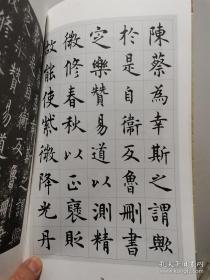 陳蔡為幸斯之謂歟
於是自衛反魯刪書
定樂贊易道以測精
微修春秋以正褒貶
故能使紫微降光丹
贊易道